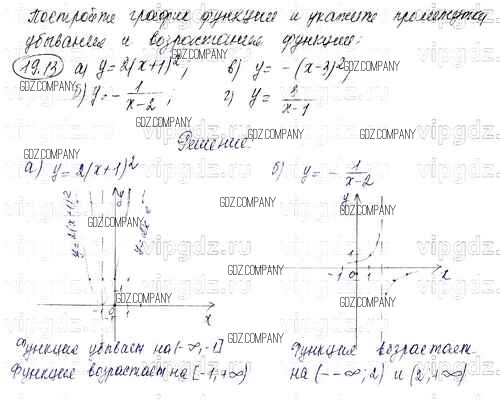 Постройте график функции и укажите промежутки
убывания и возрастания функции:
19.13 а) y=2(x+1)²; в) y = -(x-3)²;
б) y = - 1/(x-2); г) y = 3/(x-1)
Решение.
а) y=2(x+1)² б) y = - 1/(x-2)
y y
y=2(x+1)²
1
-1 0 1 x
-1 0 1 x
Функция убывает на (-∞,-1] Функция возрастает
Функция возрастает на [-1,+∞) на (-∞;2) и (2,+∞)
GDZ.COMPANY
vipgdz.ru